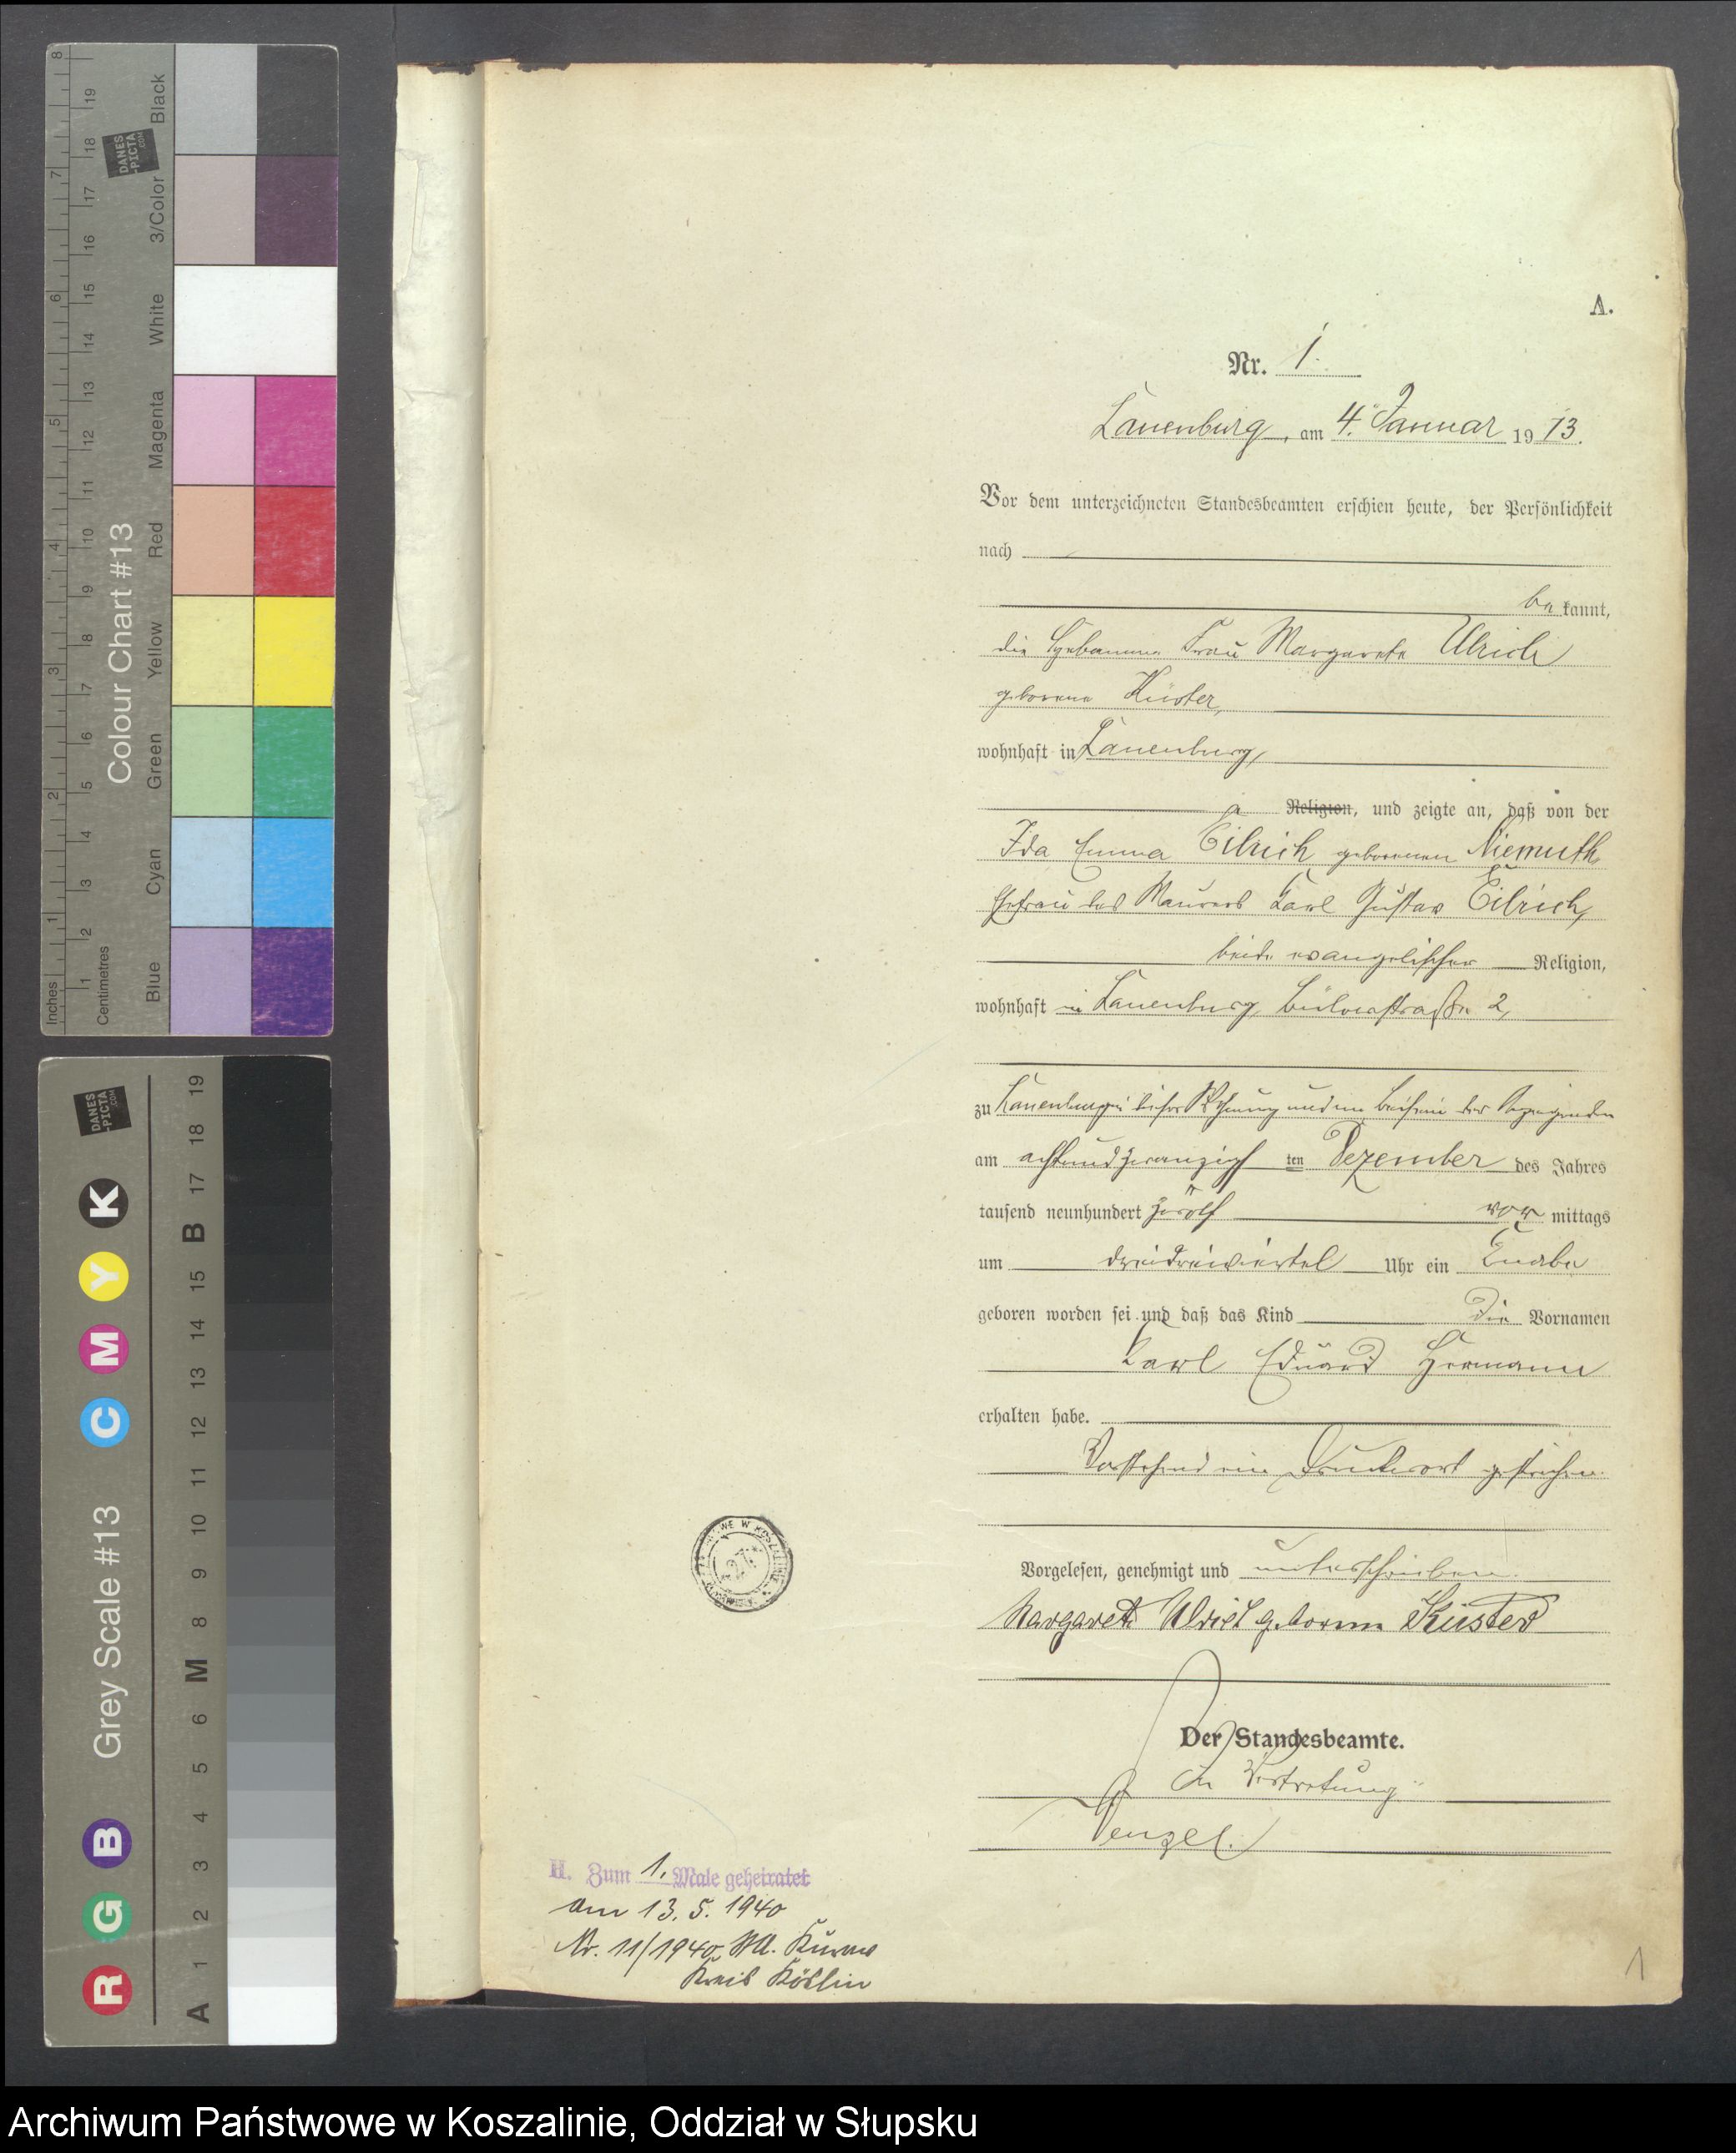 A.
Nr. 1.
Lauenburg, am 4. Januar 1913.
Vor dem unterzeichneten Standesbeamten erschien heute, der Persönlichkeit
nach
be kannt,
die Hebamme Frau Margarete Ulrich
geborene Küster,
wohnhaft in Lauenburg,
Religion, und zeigte an, daß von der
Ida Emma Eilrich geborenen Niemuth,
Ehefrau des Maurers Karl Gustav Eilrich,
beide evangelischer Religion,
wohnhaft in Lauenburg, Bülowstraße 2,
zu Lauenburg in dieser Wohnung und im Beisein der Anzeigenden
am achtundzwanzigsten Dezember des Jahres
tausend neunhundert zwölf vor mittags
um dreidreiviertel Uhr ein Knabe
geboren worden sei und daß das Kind die Vornamen
Karl Eduard Hermann
erhalten habe.
Vorstehend ein Druckwort gestrichen.
Vorgelesen, genehmigt und unterschrieben.
Margarete Ulrich geborene Küster
Der Standesbeamte.
In Vertretung
Wenzel.
H. Zum 1. Male geheiratet
am 13. 5. 1940
Nr. 11/1940, StA.
Kreis Köslin
1
Colour Chart #13
Black
3/Color
White
Magenta
Red
Yellow
Green
Cyan
Blue
Inches
Centimetres
DANES-PICTA.COM
Grey Scale #13
R G B C M Y K
A 1 2 3 4 5 6 M 8 9 10 11 12 13 14 15 B 17 18 19
Archiwum Państwowe w Koszalinie, Oddział w Słupsku